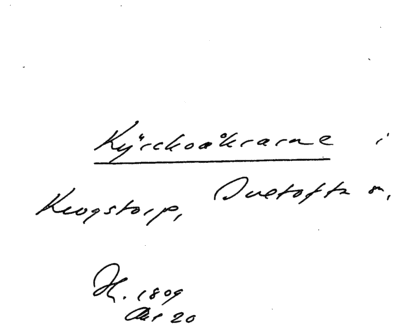 Kÿrckoåkrarne i
Krogstorp, Duetofta s.
H. 1809
Akt 20